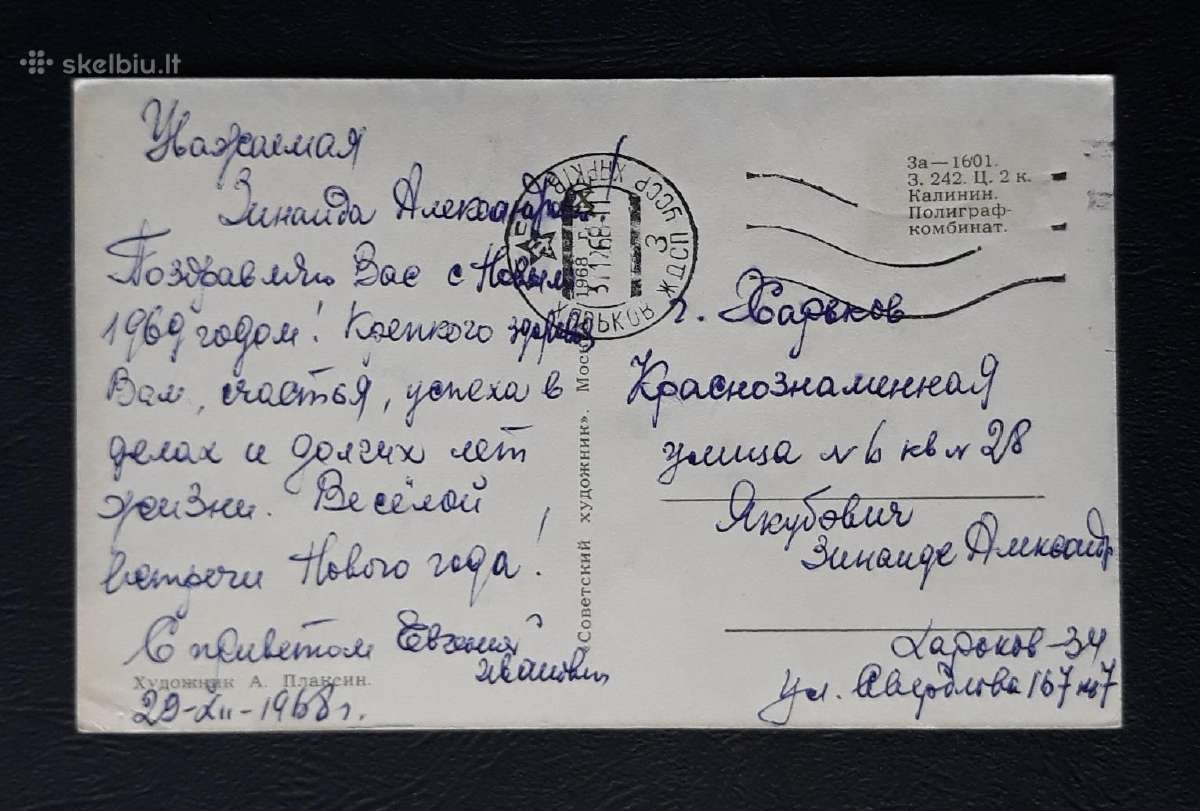 skelbiu.lt
Уважаемая
Зинаида Александровна
Поздравляю Вас с Новым
1969 годом! Крепкого здоровья
Вам, счастья, успеха в
делах и долгих лет
жизни. Весёлой
встречи Нового года!
С приветом Евгений
Иванович
Художник А. Плаксин.
29-XII-1968 г.
«Советский художник». Москва 1968
УССР ХАРКІВ
ХАРЬКОВ ЖДСП
3
За—1601.
З. 242. Ц. 2 к.
Калинин.
Полиграф-
комбинат.
г. Харьков
Краснознаменная
улица № 6 кв № 28
Якубович
Зинаиде Александр
Харьков-34
ул. Свердлова 167 кв 7